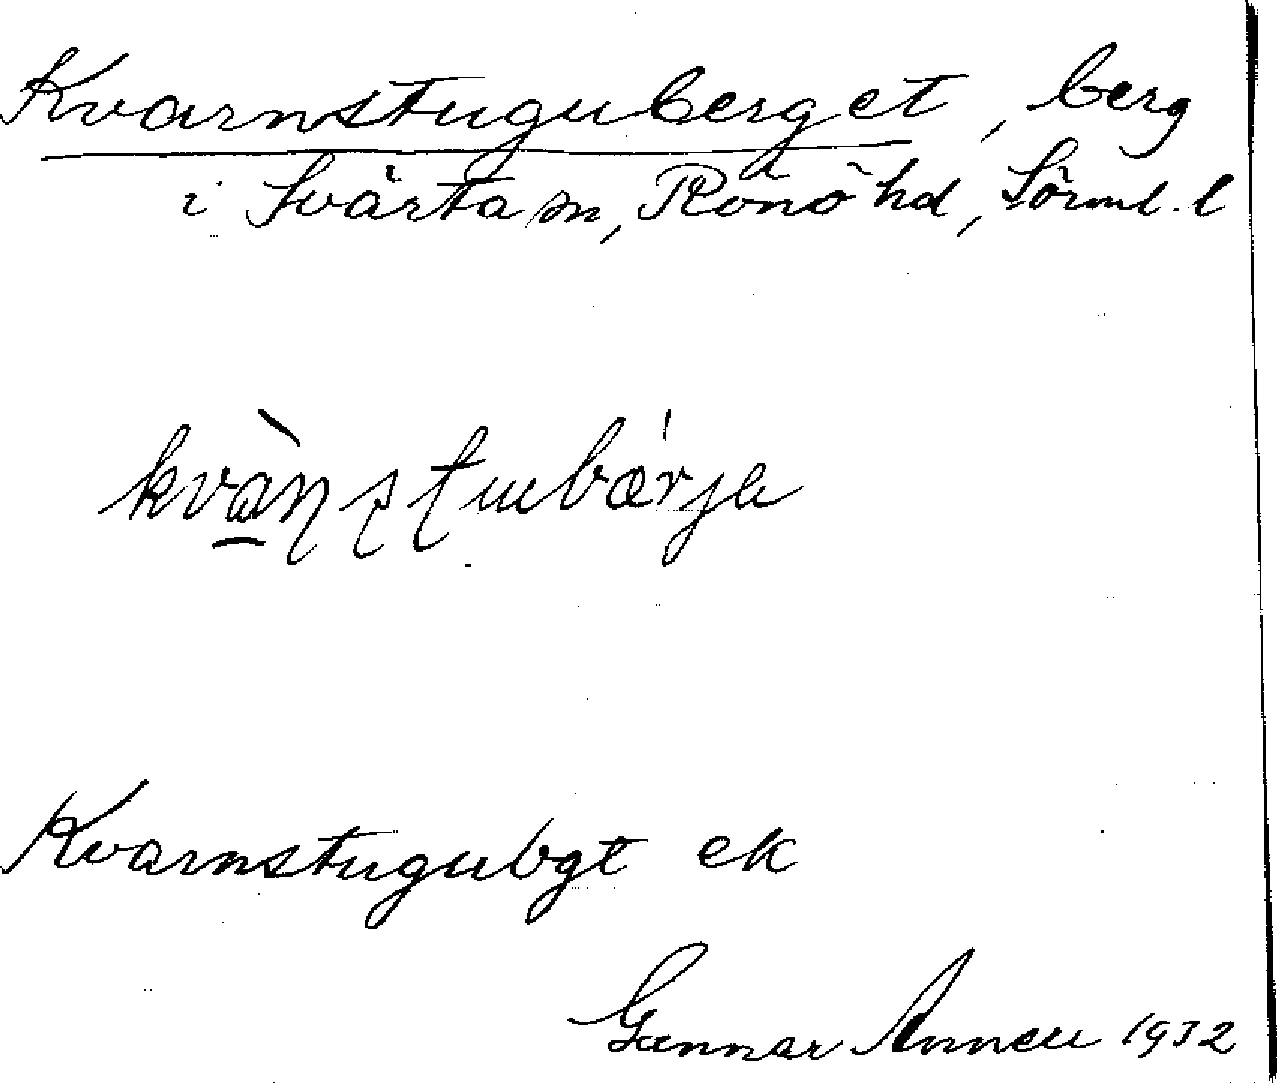 Kvarnstuguberget, berg
i Svärta sn, Rönö hd, Sörml. l
kvàɳʂʈɯbǽrjə
Kvarnstugubgt ek
Gunnar 1932